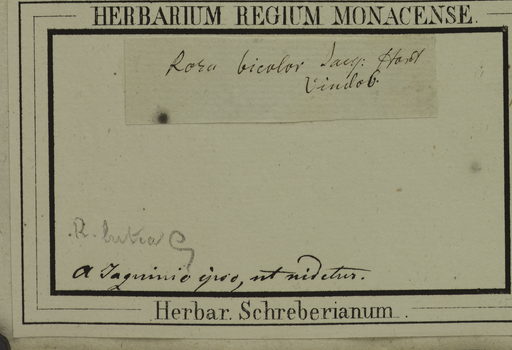 HERBARIUM REGIUM MONACENSE.
Rosa bicolor Jacq: Hort
Vindob.
R. lutea
a Jaquinio ipso, ut videtur.
Herbar. Schreberianum.